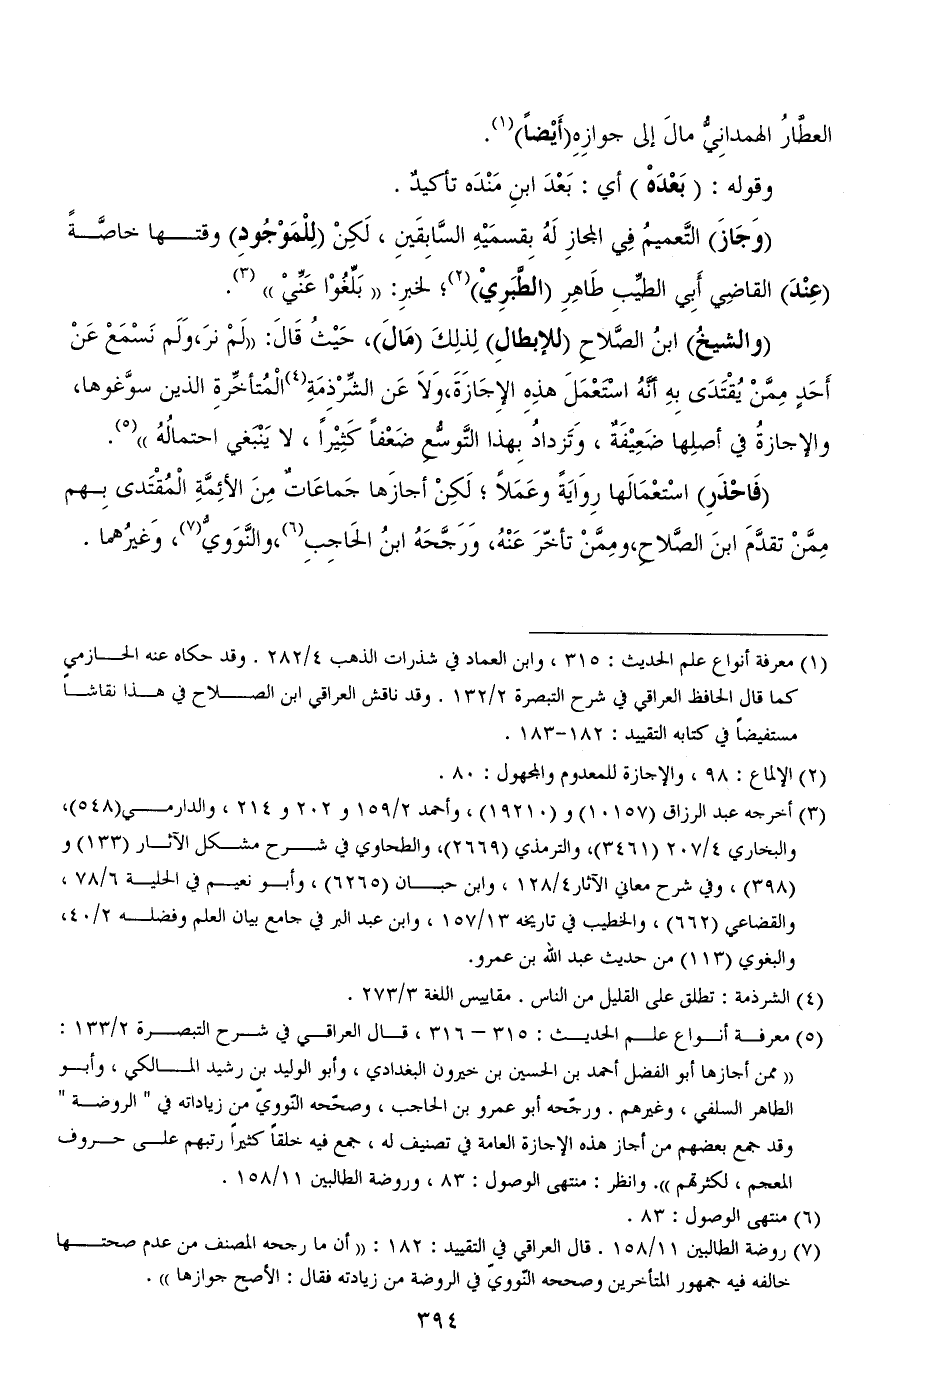 العطَّارُ الهمدانِيُّ مالَ إلى جوازِهِ(أَيْضاً)(١).
وقوله : ( بَعْدَهْ ) أي : بَعْدَ ابنِ مَنْدَه تأكيدٌ .
(وَجَازَ) التَّعميمُ فِي المجازِ لَهُ بقسمَيْهِ السَّابقَينِ ، لَكِنْ (لِلْمَوْجُودِ) وقتـها خاصَّـةً
(عِنْدَ) القاضِي أَبِي الطيِّبِ طَاهِرِ (الطَّبَرِيْ)(٢)؛ لخبرِ: (( بَلِّغُوْا عَنِّيْ )) (٣).
(والشيخُ) ابنُ الصَّلاحِ (للإبطالِ) لِذلِكَ (مَالَ)، حَيْثُ قَالَ: ((لَمْ نرَ،وَلَم نَسْمَعْ عَنْ
أَحَدٍ مِمَّنْ يُقْتَدَى بِهِ أنَّهُ اسْتَعْمَلَ هذِهِ الإجَازَةَ،وَلاَ عَنِ الشِّرْذمَةِ(٤)الْمُتأخِّرةِ الذين سوَّغوها،
والإجازةُ في أصلِها ضَعِيْفَةٌ ، وَتَزدادُ بِهذا التَّوسُّعِ ضَعْفاً كَثِيْراً ، لا يَنْبَغي احتمالُهُ ))(٥).
(فَاحْذَرِ) اسْتعْمَالَها رِوايَةً وعَمَلاً ؛ لَكِنْ أجازَها جَماعَاتٌ مِنَ الأئِمَّةِ الْمُقْتَدى بِـهم
مِمَّنْ تقدَّمَ ابنَ الصَّلاحِ،ومِمَّنْ تأخّرَ عَنْهُ، وَرَجَّحَهُ ابنُ الحَاجبِ(٦)،والنَّوويُّ(٧)، وَغيرُهما .
(١) معرفة أنواع علم الحديث : ٣١٥ ، وابن العماد في شذرات الذهب ٢٨٢/٤ . وقد حكاه عنه الحـازمي
كما قال الحافظ العراقي في شرح التبصرة ١٣٢/٢ . وقد ناقش العراقي ابن الصـلاح في هـذا نقاشـاً
مستفيضاً في كتابه التقييد : ١٨٢-١٨٣ .
(٢) الإلماع : ٩٨ ، والإجازة للمعدوم والمجهول : ٨٠ .
(٣) أخرجه عبد الرزاق (١٠١٥٧) و (١٩٢١٠) ، وأحمد ١٥٩/٢ و ٢٠٢ و ٢١٤ ، والدارمـي(٥٤٨)،
والبخاري ٢٠٧/٤ (٣٤٦١)، والترمذي (٢٦٦٩)، والطحاوي في شـرح مشـكل الآثـار (١٣٣) و
(٣٩٨) ، وفي شرح معاني الآثار١٢٨/٤ ، وابن حبـان (٦٢٦٥) ، وأبـو نعيـم في الحلية ٧٨/٦ ،
والقضاعي (٦٦٢) ، والخطيب في تاريخه ١٥٧/١٣ ، وابن عبد البر في جامع بيان العلم وفضلـه ٤٠/٢،
والبغوي (١١٣) من حديث عبد الله بن عمرو.
(٤) الشرذمة : تطلق على القليل من الناس . مقاييس اللغة ٢٧٣/٣ .
(٥) معرفـة أنـواع علـم الحديـث : ٣١٥ – ٣١٦ ، قـال العراقـي في شـرح التبصـرة ١٣٣/٢ :
(( ممن أجازها أبو الفضل أحمد بن الحسين بن خيرون البغدادي ، وأبو الوليد بن رشيد المـالكي ، وأبـو
الطاهر السلفي ، وغيرهم . ورجّحه أبو عمرو بن الحاجب ، وصحّحه النّوويّ من زياداته في " الروضـة "
وقد جمع بعضهم من أجاز هذه الإجازة العامة في تصنيف له ، جمع فيه خلقاً كثيراً رتبهم علـى حـروف
المعجم ، لكثرتهم )). وانظر : منتهى الوصول : ٨٣ ، وروضة الطالبين ١٥٨/١١ .
(٦) منتهى الوصول : ٨٣ .
(٧) روضة الطالبين ١٥٨/١١ . قال العراقي في التقييد : ١٨٢ : (( أن ما رجحه المصنف من عدم صحتـها
خالفه فيه جمهور المتأخرين وصححه النّوويّ في الروضة من زيادته فقال : الأصح جوازها )) .
٣٩٤